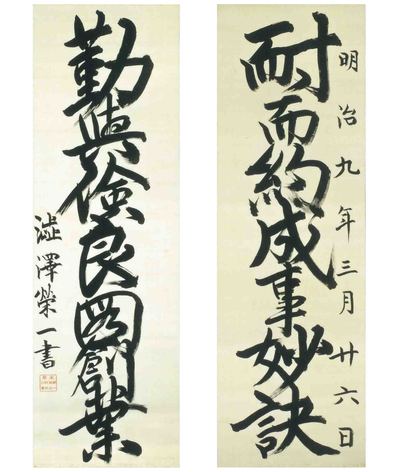 明治九年三月廿六日
耐而約成事妙訣
勤與儉良圖創業
澁澤榮一書